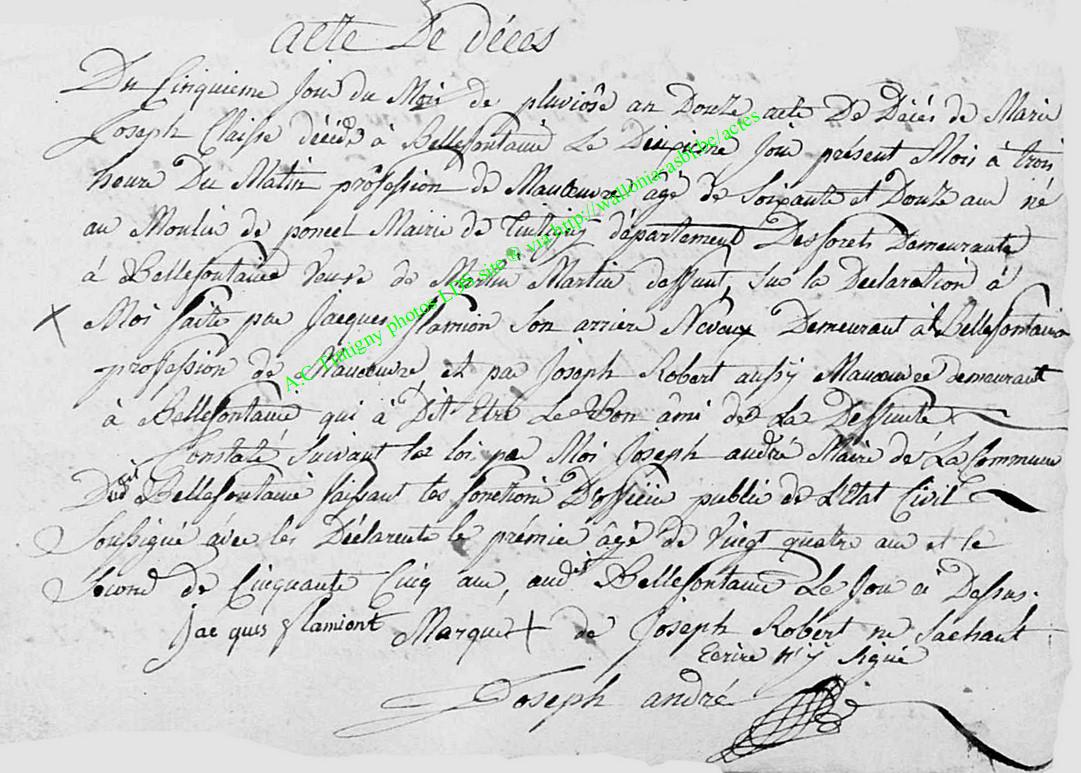 acte De décès
Du Cinquieme Jour du Mois de pluviôse an Douze acte De Décés de Marie
Joseph Claisse décédé à Bellefontaine Le Jour présent Mois à trois
heure Du Matin profession de Manœuvre âgé de Soixante et Douze ans né
au Moulin de poncel Mairie de Tintigny département Desforets Demeurante
à Bellefontaine Veuve de Martin Martin deffunt, sur la Declaration à
Moi faite par Jacques flamion Son arriere Neveux Demeurant à Bellefontaine
profession de Manœuvre et par Joseph Robert aussy Manœuvre demeurant
à Bellefontaine qui à Dit Etre Le Bon âmi de La Deffunte
Constaté Suivant la loi par Moi Joseph andré Maire de La Commune
Dudit Bellefontaine faissant les fonctions D'officier public de L'Etat Civil
Soussigné avec les Déclarents le prémier âgé de Vingt quatre ans et le
Second de Cinquante Cinq ans, audit Bellefontaine Le Jour ci Dessus.
Jacquis flamiont Marque + de Joseph Robert ne Sachant
Ecrire n'y Signé
Joseph andré
A.C. Tintigny photos LDS site © via http://wallonia.asbl.be/actes